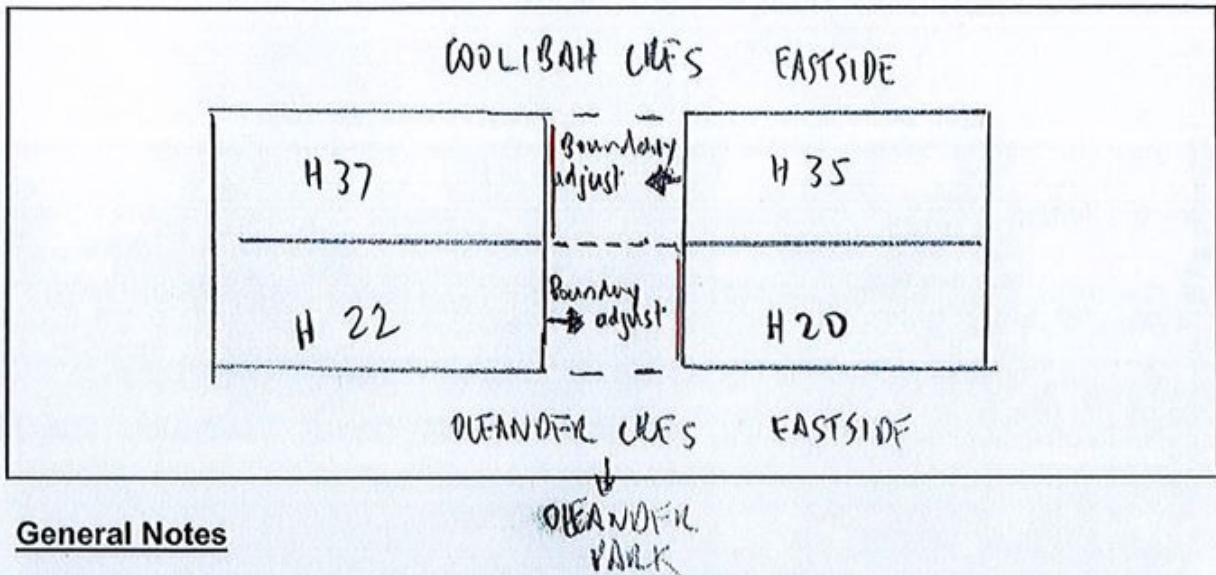 COOLIBAH CRES EASTSIDE
H 37
Boundary
adjust
H 35
H 22
Boundary
adjust
H 20
OLEANDER CRES EASTSIDE
OLEANDER
PARK
General Notes